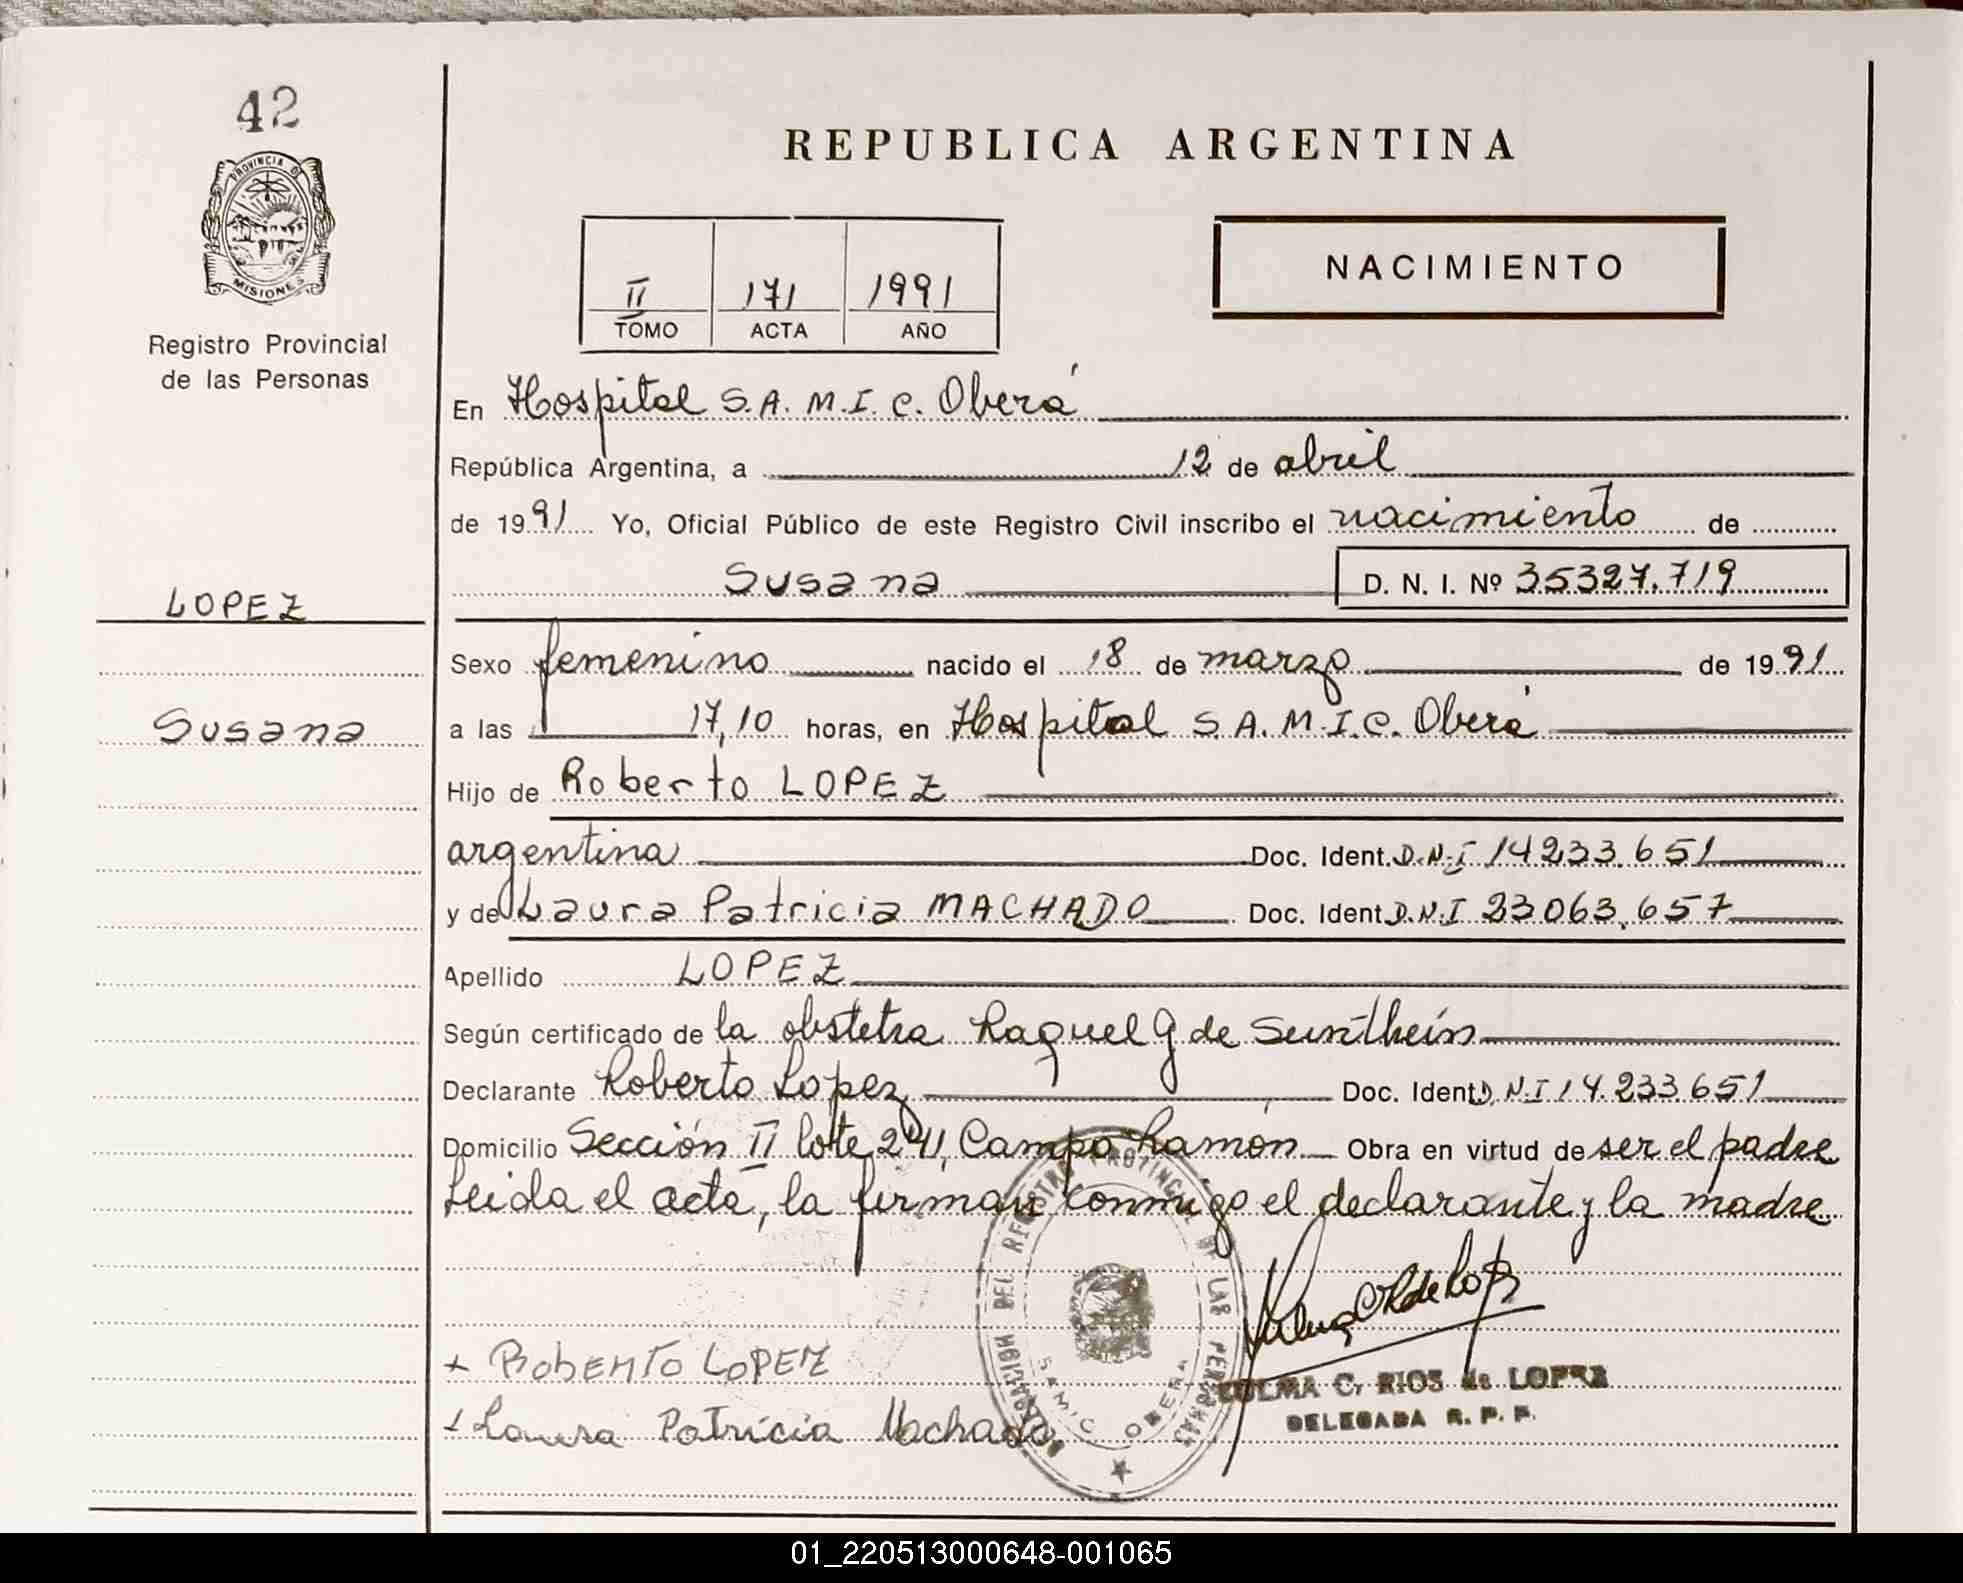 42
PROVINCIA DE
MISIONES
Registro Provincial
de las Personas
LOPEZ
Susana
REPUBLICA ARGENTINA
II 171 1991
TOMO ACTA AÑO
NACIMIENTO
En Hospital S.A.M.I.C. Oberá
República Argentina, a 12 de abril
de 1991 Yo, Oficial Público de este Registro Civil inscribo el nacimiento de
Susana D. N. I. Nº 35327.719
Sexo femenino nacido el 18 de marzo de 1991
a las 17,10 horas, en Hospital S.A.M.I.C. Oberá
Hijo de Roberto LOPEZ
argentina Doc. Ident. D.N.I 14233.651
y de Laura Patricia MACHADO Doc. Ident D.N.I 23063.657
Apellido LOPEZ
Según certificado de la obstetra Raquel G de
Declarante Roberto Lopez Doc. Ident D.N.I 14.233.651
Domicilio Sección II lote 241, Campo Ramón Obra en virtud de ser el padre
Leida el acta, la firman conmigo el declarante y la madre
+ ROBERTO LOPEZ
+ Laura Patricia Machado
DEL REGISTRO PROVINCIAL DE LAS PERSONAS
SAMIC OBERA
C. RIOS de LOPEZ
DELEGADA R. P. P.
01_220513000648-001065